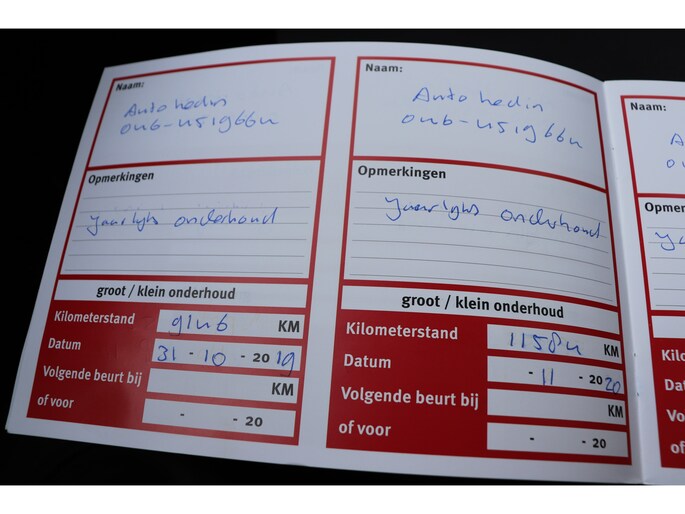 Naam:
Auto hedin
046-4519664
Opmerkingen
Jaarlijks onderhoud
groot / klein onderhoud
Kilometerstand 9146 KM
Datum 31 - 10 - 2019
Volgende beurt bij KM
of voor - - 20
Naam:
Auto hedin
046-4519664
Opmerkingen
Jaarlijks onderhoud
groot / klein onderhoud
Kilometerstand 11584 KM
Datum - 11 - 2020
Volgende beurt bij KM
of voor - - 20
Naam:
A
Opmer
Kilo
Datu
Volg
of vo